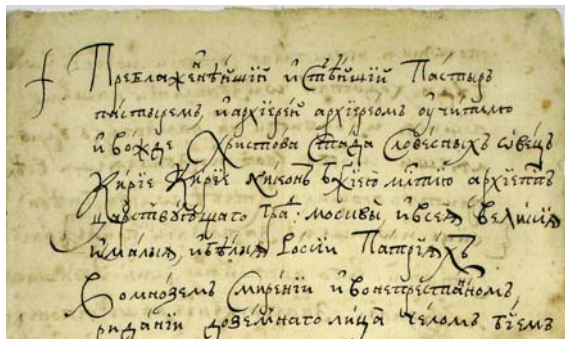 Преблаженнѣйшїй и стѣ́йшїй Пастырь
пастыремъ, и архїерей архїереомъ оучителю
и вожде Христова Стада Словесныхъ ѡвецъ
Кирїе Кирїе Никонъ бжїею млтїю архїеппъ
царствꙋющаго гра: москвы, и всея великїя
и малыя, и бѣлыя Росїи Патрїархъ
Во мноземъ Смиренїи и во непрестанномъ
риданїи до земнаго лица челомъ бїемъ